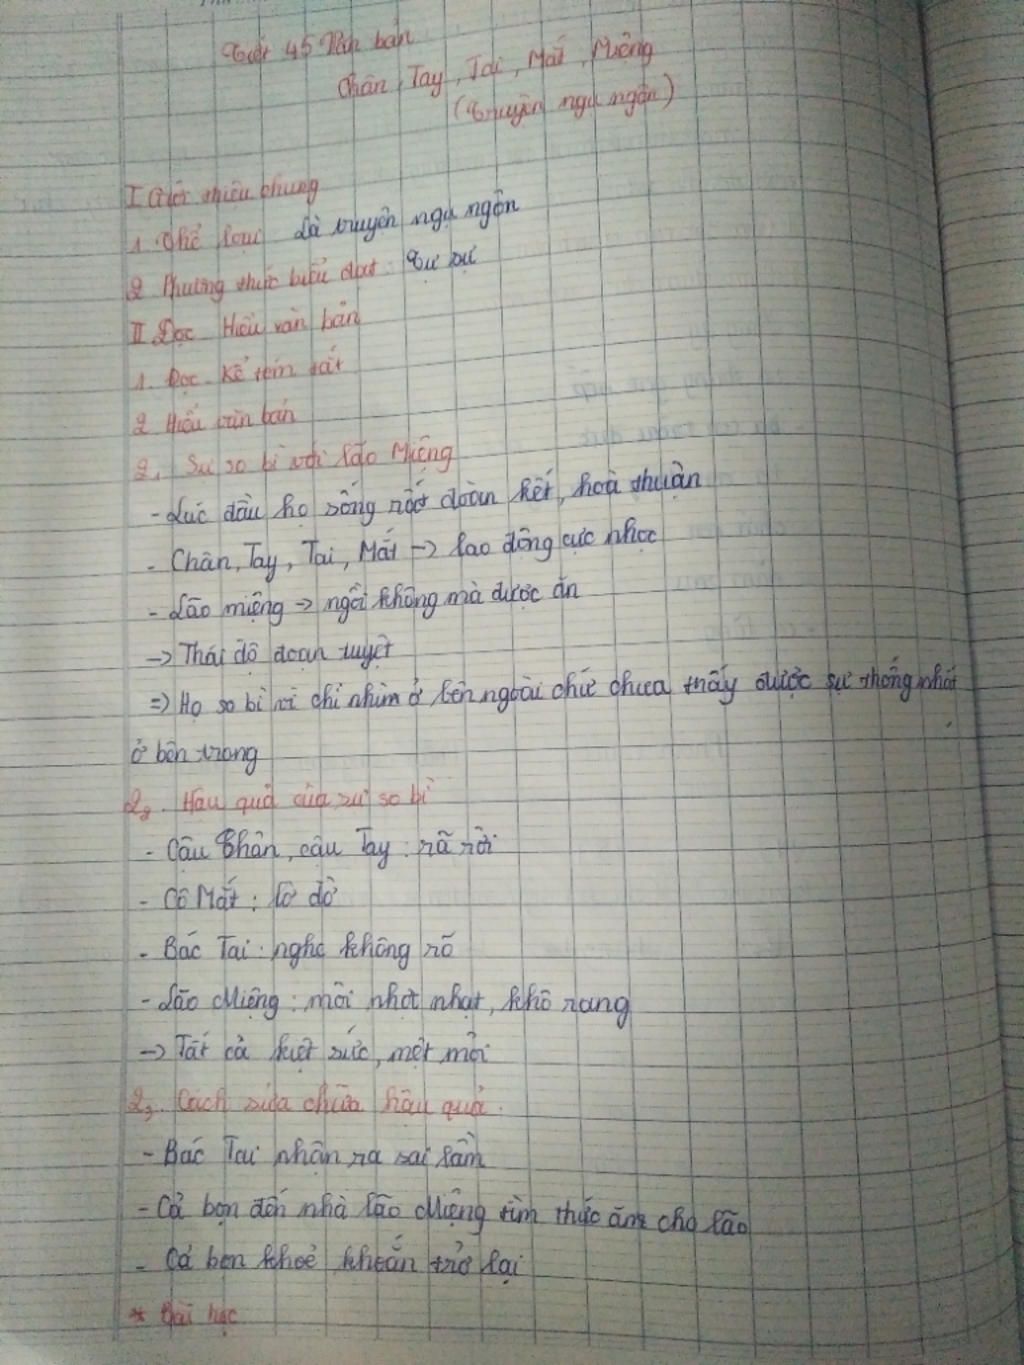 Tiết 45 Văn bản
Chân, Tay, Tai, Mắt, Miệng
(Truyện ngụ ngôn)
I Giới thiệu chung
1. Thể loại Là truyện ngụ ngôn
2 Phương thức biểu đạt: Tự sự
II Đọc Hiểu văn bản
1. Đọc - Kể tóm tắt
2 Hiểu văn bản
2₁ Sự so bì với lão Miệng
- Lúc đầu họ sống rất đoàn kết, hoà thuận
- Chân, Tay, Tai, Mắt -> lao động cực nhọc
- Lão miệng -> ngồi không mà được ăn
-> Thái độ đoạn tuyệt
=> Họ so bì vì chỉ nhìn ở bên ngoài chứ chưa thấy được sự thống nhất
ở bên trong
2₂. Hậu quả của sự so bì
- Cậu Chân, cậu Tay: rã rời
- Cô Mắt: lờ đờ
- Bác Tai: nghe không rõ
- Lão Miệng: môi nhợt nhạt, khô rang
-> Tất cả kiệt sức, mệt mỏi
2₃. Cách sửa chữa hậu quả.
- Bác Tai nhận ra sai lầm
- Cả bọn đến nhà lão Miệng tìm thức ăn cho lão
- Cả bọn khoẻ khoắn trở lại
* Bài học